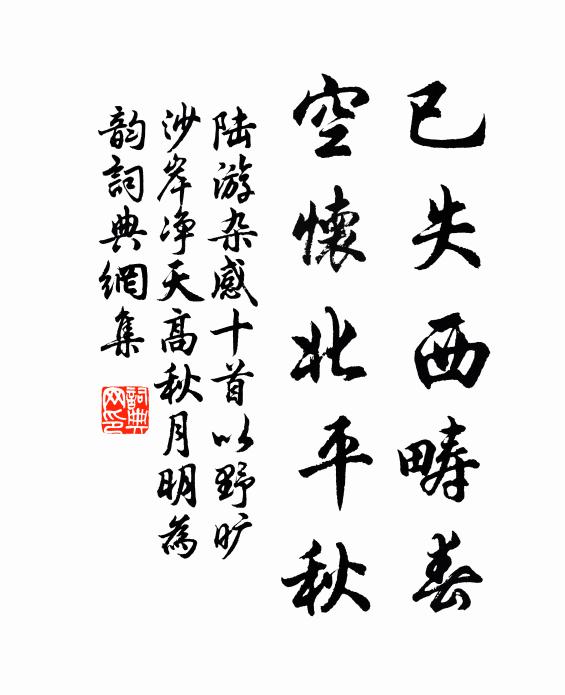 已失西畴春
空懷北平秋
陆游杂感十首以野旷
沙岸净天高秋月明為
韵詞典網集
詞典
网印